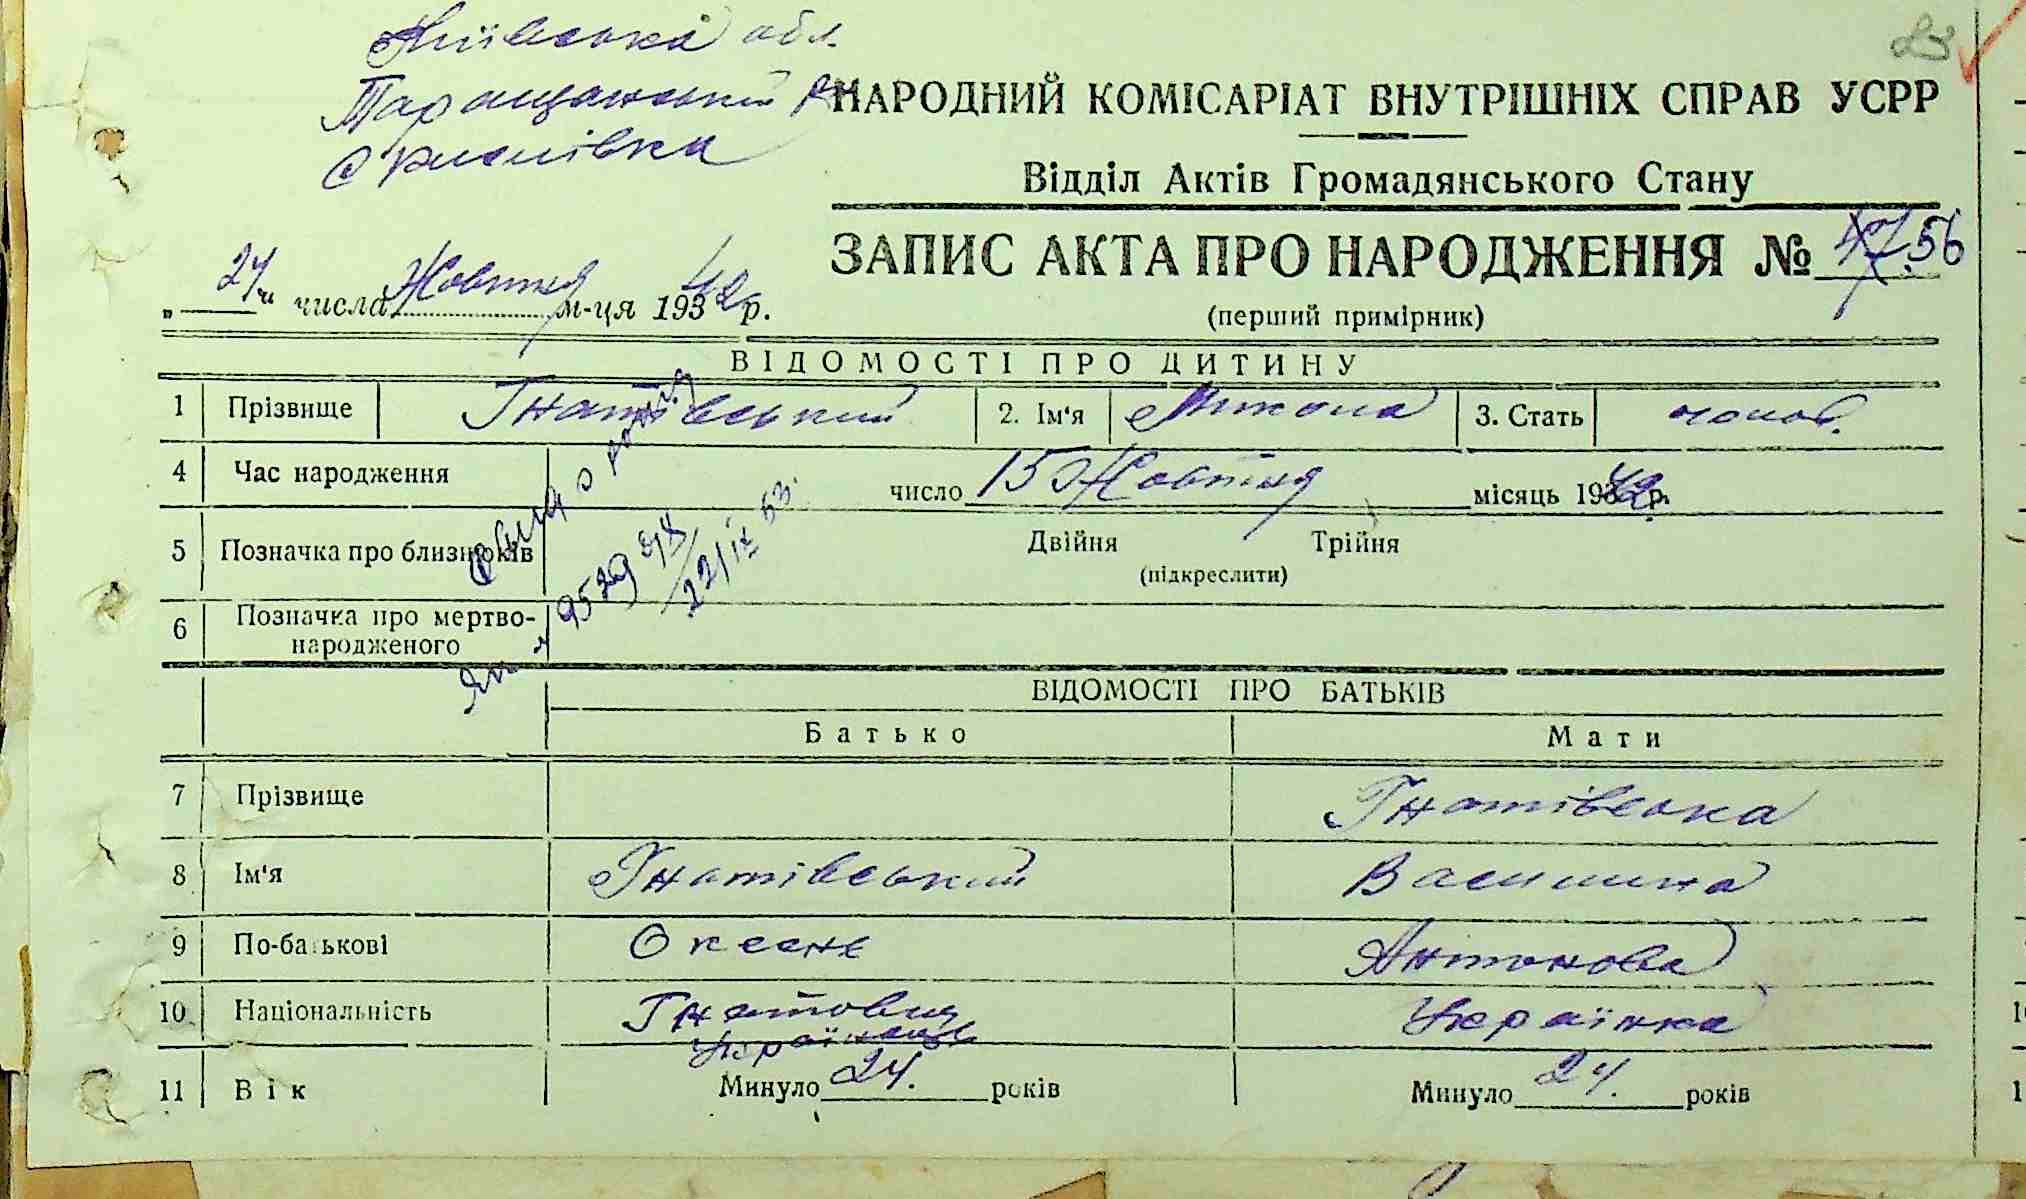 Київська обл.
23
Таращанський рн
НАРОДНИЙ КОМІСАРІАТ ВНУТРІШНІХ СПРАВ УСРР
с
Відділ Актів Громадянського Стану
ЗАПИС АКТА ПРО НАРОДЖЕННЯ № 47. 56
„ 24 " числа Жовтня м-ця 193 42 р.
(перший примірник)
ВІДОМОСТІ ПРО ДИТИНУ
1 Прізвище Гнатівський 2. Ім'я Микола 3. Стать чолов.
4 Час народження число 15 Жовтня місяць 1942 р.
5 Позначка про близнюків Двійня Трійня
(підкреслити)
9529
22/IX 53.
6 Позначка про мертво-
народженого
ВІДОМОСТІ ПРО БАТЬКІВ
Батько Мати
7 Прізвище Гнатівська
8 Ім'я Гнатівський Василина
9 По-батькові Антонова
10 Національність Гнатович Українка
Українець
11 Вік Минуло 24. років Минуло 24. років